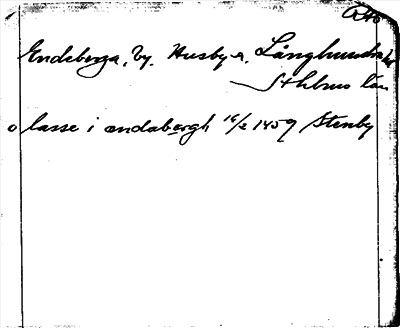 Endeberga, by. Husby s. Långhundra hd
Sthlms län
o lasse i ændabærgh 16/2 1459 Stenby